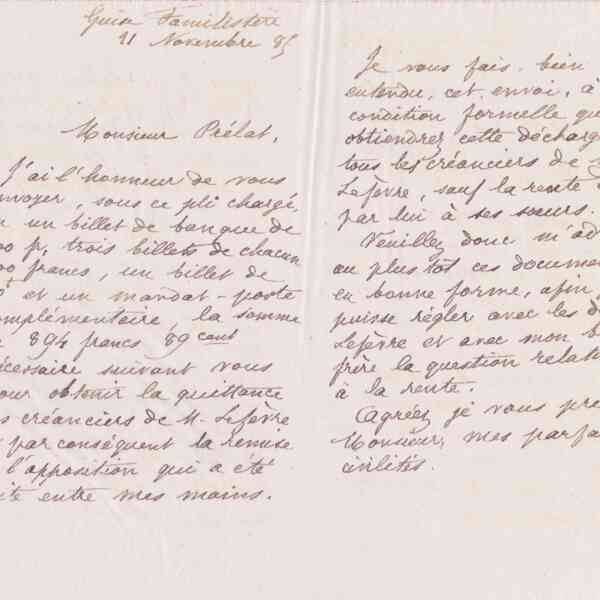 Guise Familistère
11 Novembre 85
Monsieur Prélat,
J'ai l'honneur de vous
nvoyer, sous ce pli chargé,
n un billet de banque de
00 f, trois billets de chacun
00 francs, un billet de
et un mandat-poste
omplémentaire, la somme
e 894 francs 89 cent
écessaire suivant vous
our obtenir la quittance
s créanciers de M. Lefèvre
par conséquent la remise
l'opposition qui a été
ite entre mes mains.
Je vous fais, bien
entendu, cet envoi, à
condition formelle qu
obtiendrez cette décharg
tous les créanciers de
Lefèvre, sauf la rente
par lui à ses sœurs.
Veuillez donc m'ad
au plus tôt ces documen
en bonne forme, afin
puisse régler avec les d
Lefèvre et avec mon b
frère la question relati
à la rente.
Agréez je vous pr
Monsieur, mes parfa
civilités.